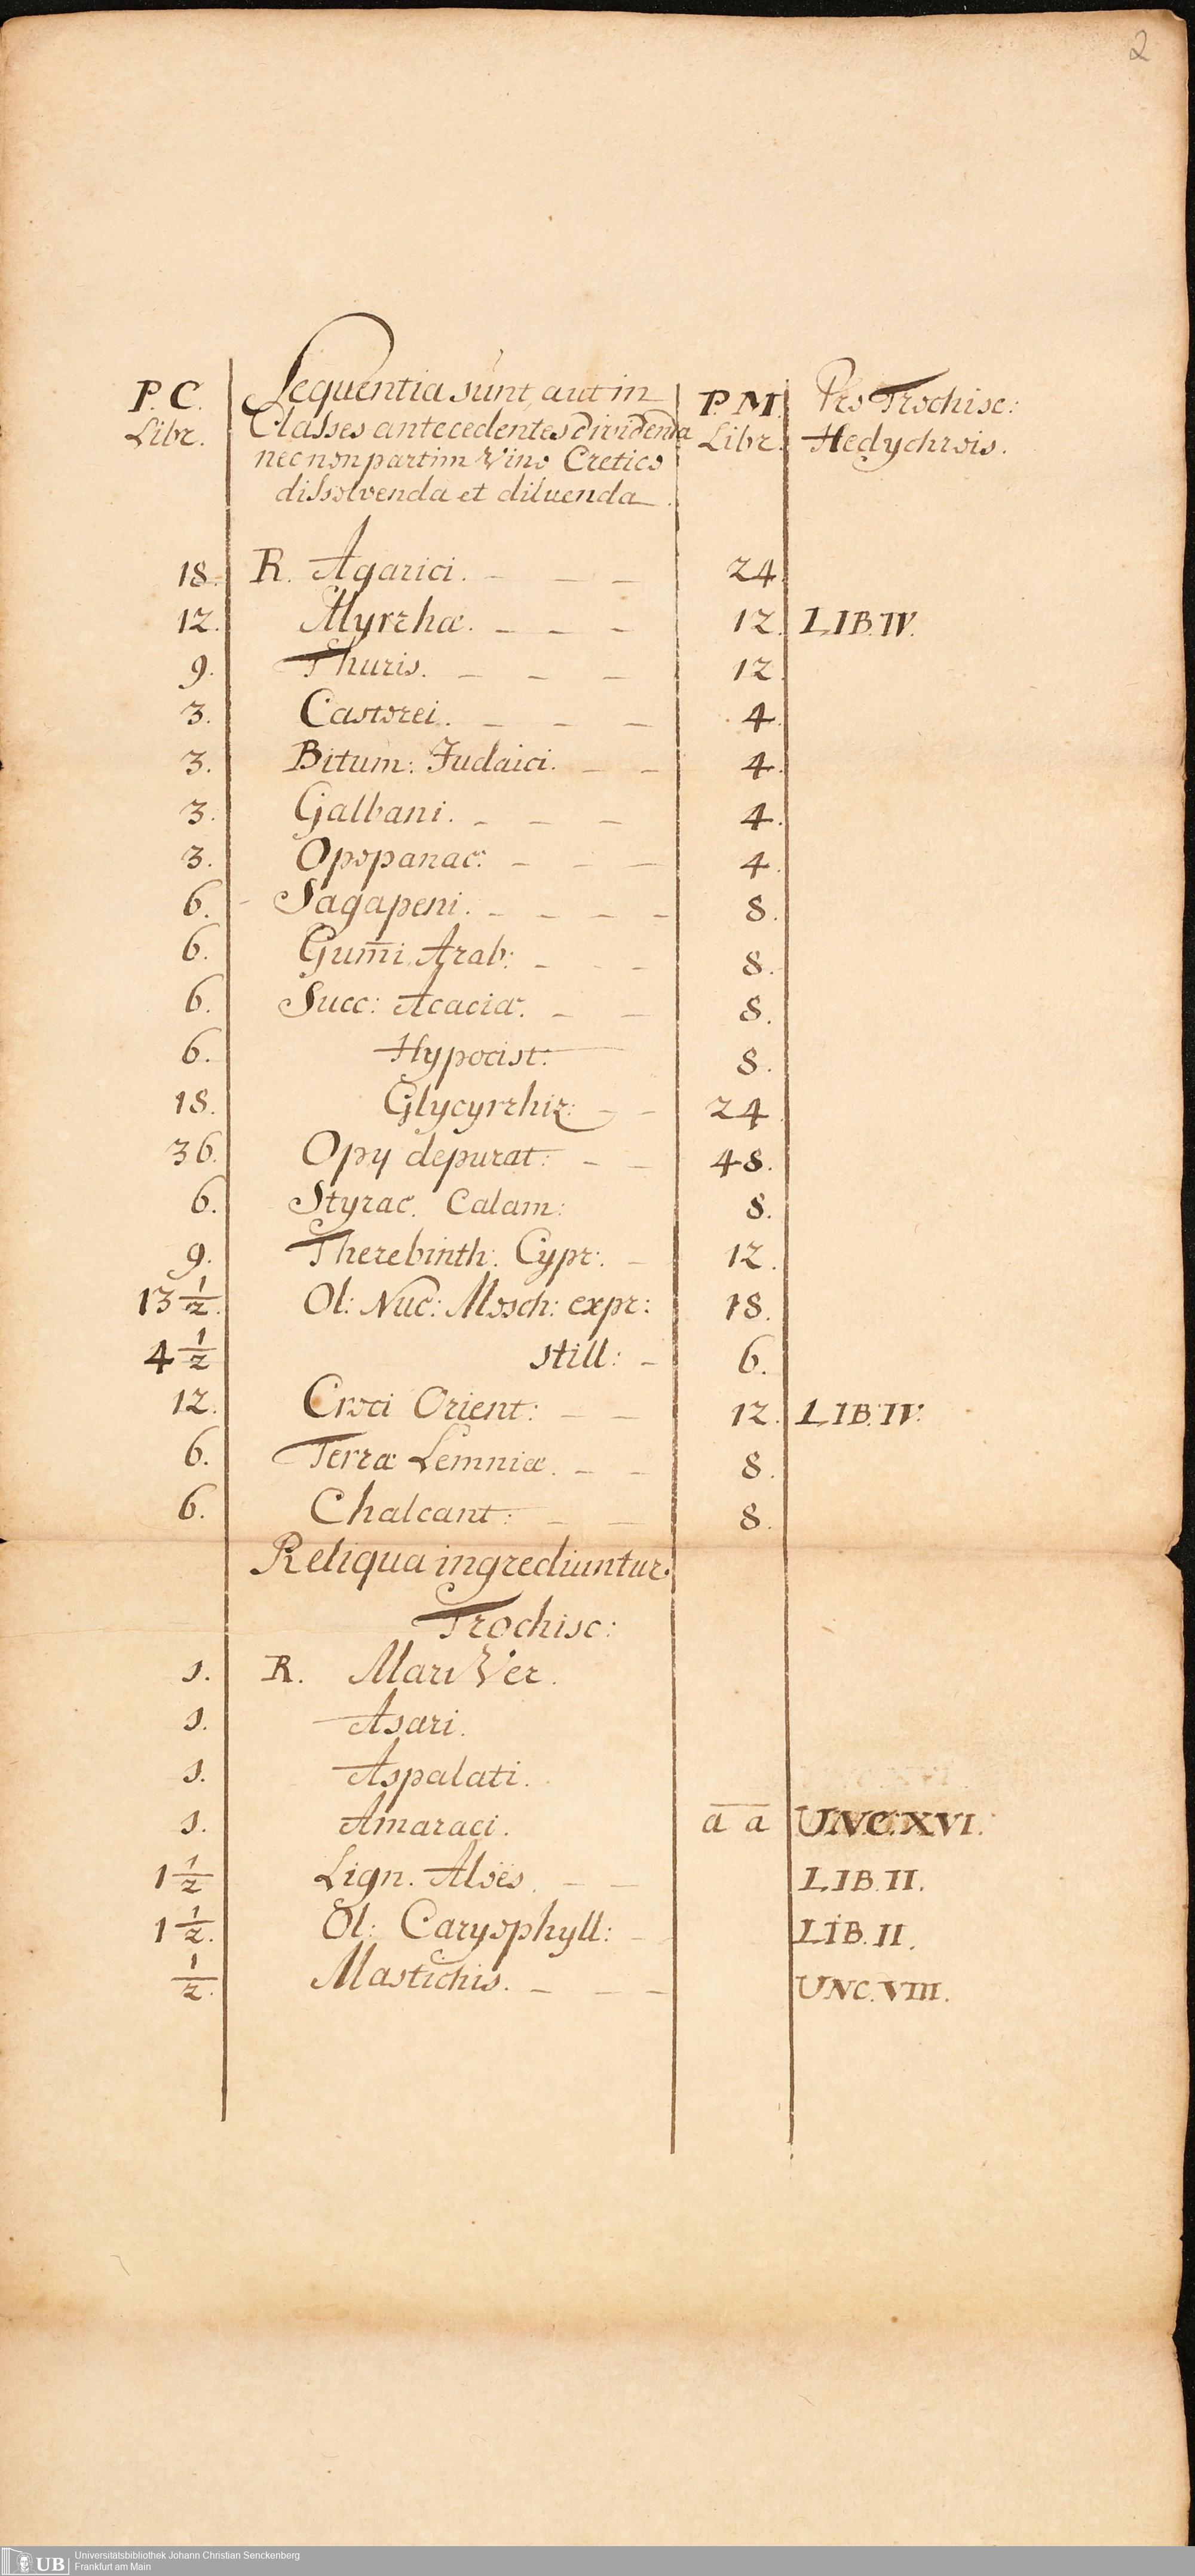 2
P. C. Sequentia sunt, aut in P. M. Pro Trochisc:
Libr. Classes antecedentes dividenda Libr. Hedychrois.
nec non partim Vino Cretico
dissolvenda et diluenda.
18. R. Agarici. - - - 24.
12. Myrrhæ. - - - 12. LIB. IV.
9. Thuris. - - - 12.
3. Castorei. - - - 4.
3. Bitum: Judaici. - - 4.
3. Galbani. - - - 4.
3. Opopanac: - - - 4.
6. - Sagapeni. - - - - 8.
6. Gum̄i Arab: - - - 8.
6. Succ: Acaciæ. - - 8.
6. Hypocist: 8.
18. Glycyrrhiz: - - 24.
36. Opy depurat: - - 48.
6. Styrac. Calam: 8.
9. Therebinth: Cypr: - 12.
13 1/2. Ol: Nuc: Mosch: expr: 18.
4 1/2 still: - 6.
12. Croci Orient: - - 12. LIB. IV.
6. Terræ Lemniæ. - - 8.
6. Chalcant: - - 8.
Reliqua ingrediuntur.
Trochisc:
1. R. Mari Ver.
1. Asari.
1. Aspalati.
1. Amaraci. a̅ a̅ UNC. XVI.
1 1/2 Lign. Aloës. - - LIB. II.
1 1/2. Ol: Caryophyll: - LIB. II.
1/2. Mastichis. - - - UNC. VIII.
UB Universitätsbibliothek Johann Christian Senckenberg
Frankfurt am Main